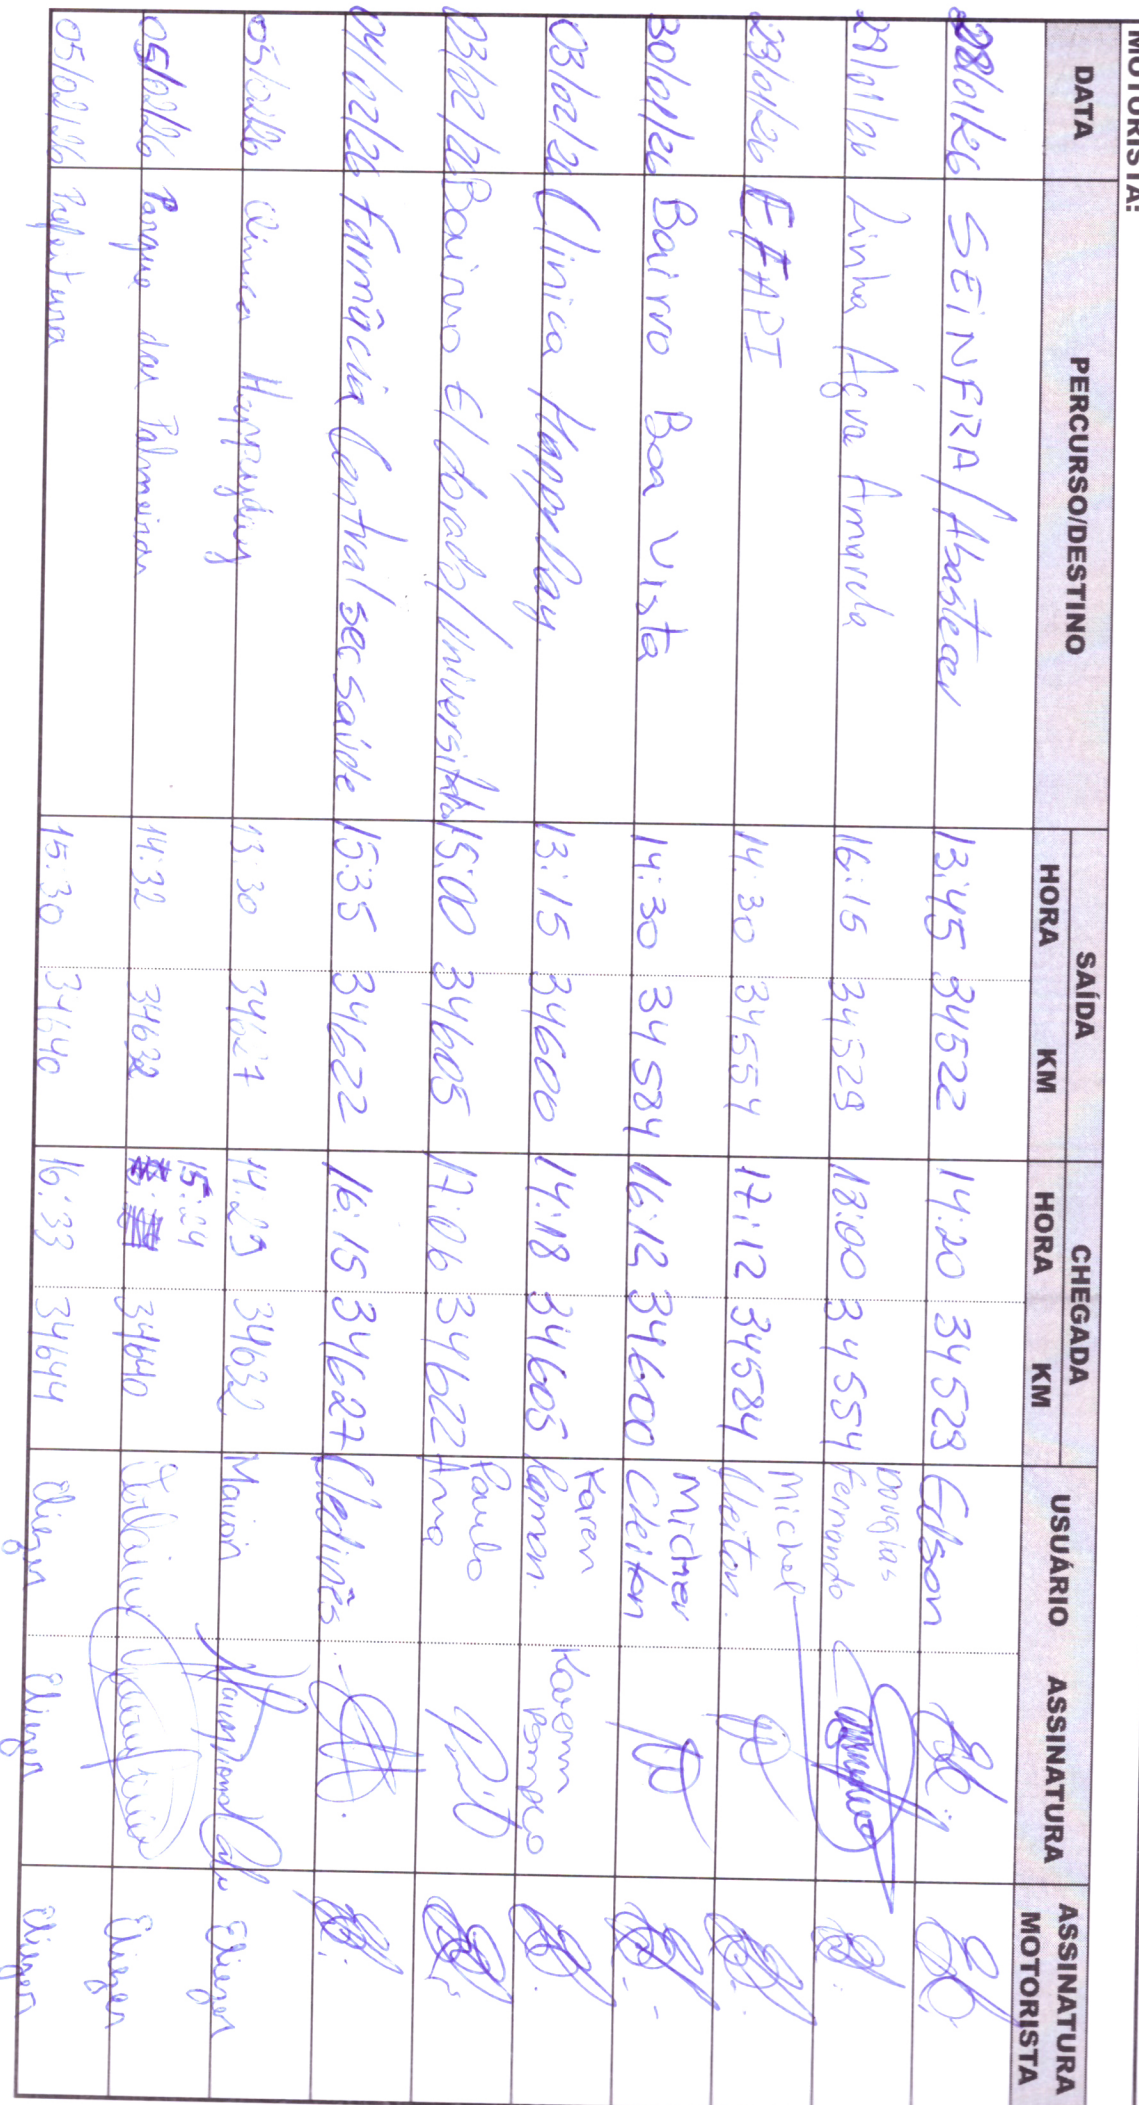 MOTORISTA:
DATA PERCURSO/DESTINO SAÍDA CHEGADA USUÁRIO ASSINATURA ASSINATURA MOTORISTA
HORA KM HORA KM
28/01/26 SEINFRA/Abastecer 13:45 34522 14:20 34529 Edson
29/01/26 Linha Água Amarela 16:15 34529 18:00 34554 Douglas Fernando
29/01/26 EFAPI 14:30 34554 17:12 34584 Michel Cleiton
30/01/26 Bairro Boa Vista 14:30 34584 16:12 34600 Micher Cleiton
03/02/26 Clinica Happy Day 13:15 34600 14:18 34605 Karen Raman. Karem
03/02/26 Bairro Eldorado/Universitário 15:00 34605 17:06 34622 Paulo Ana
04/02/26 Farmácia Central sec saúde 15:35 34622 16:15 34627 Cledinês
05/02/26 Clinica Happyday 13:30 34627 14:29 34632 Marion Eliezer
05/02/26 Parque das Palmeiras 14:32 34632 15:24 34640 Eliezer
05/02/26 Prefeitura 15:30 34640 16:33 34644 Eliezer Eliezer Eliezer